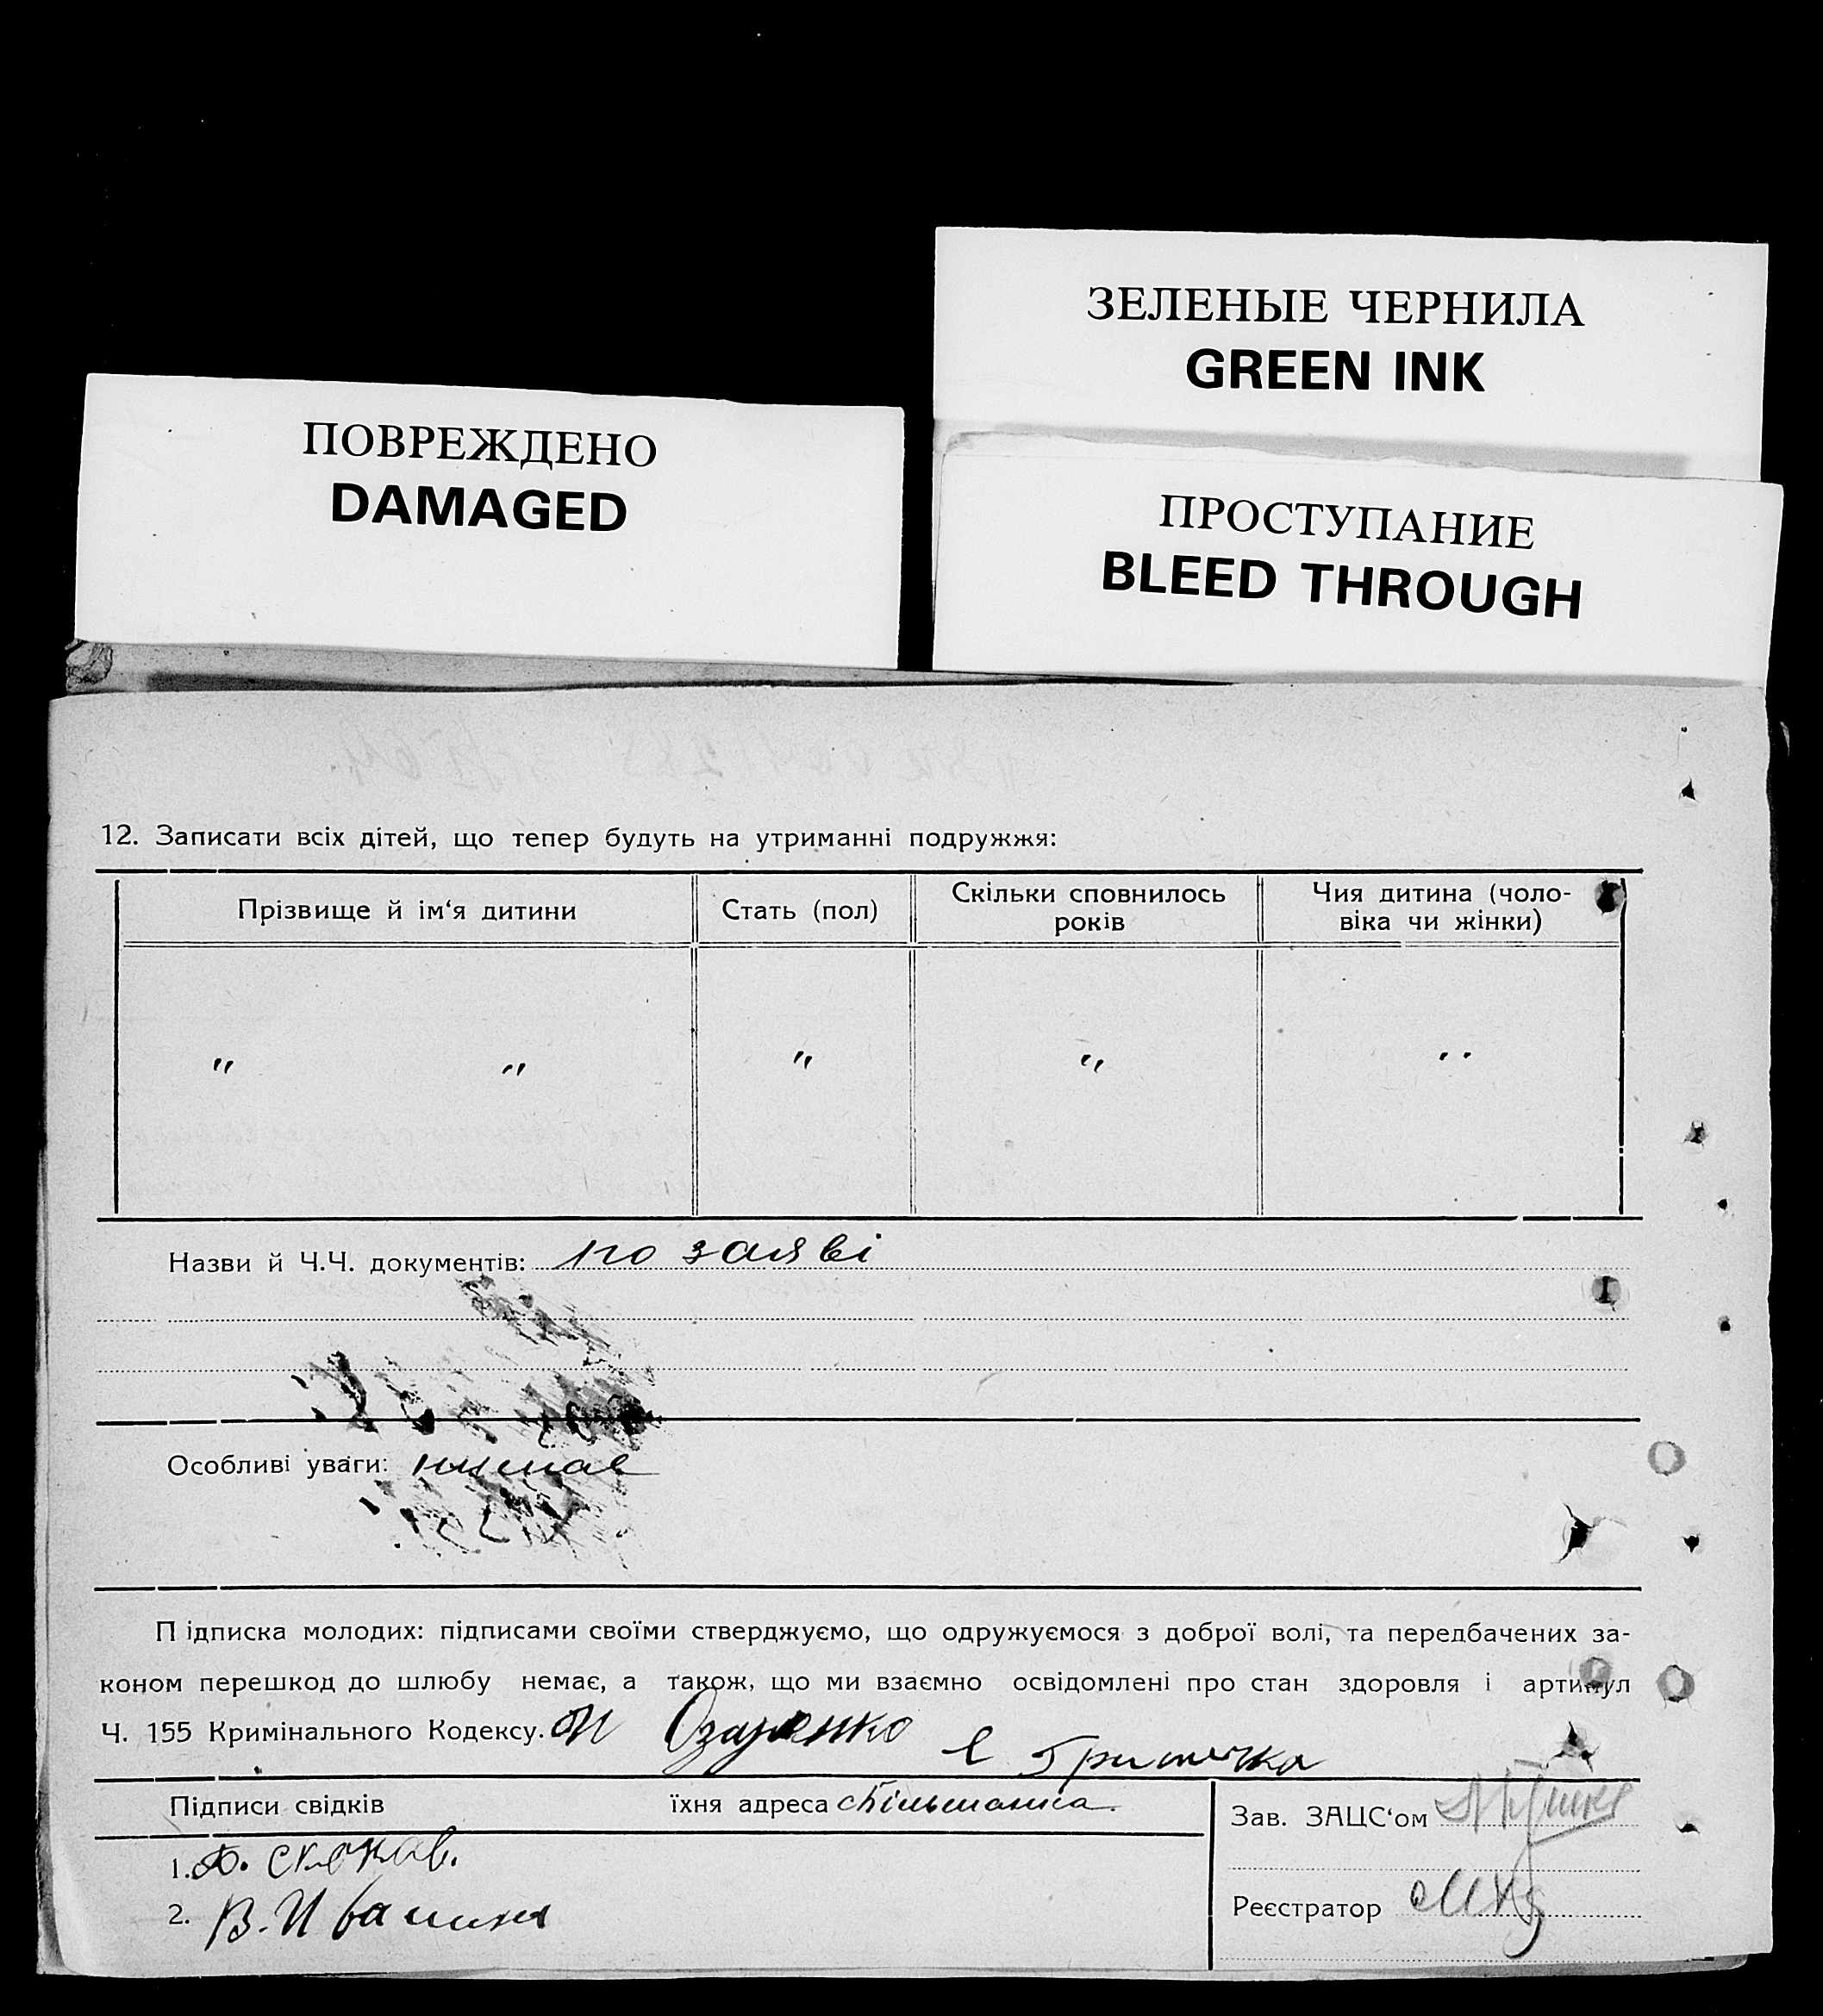 ЗЕЛЕНЫЕ ЧЕРНИЛА
GREEN INK
ПОВРЕЖДЕНО
DAMAGED
ПРОСТУПАНИЕ
BLEED THROUGH
12. Записати всіх дітей, що тепер будуть на утриманні подружжя:
Прізвище й ім‘я дитини
Стать (пол)
Скільки сповнилось
років
Чия дитина (чоло-
віка чи жінки)
" " " " "
Назви й Ч.Ч. документів: по заяві
Особливі уваги: немає
Підписка молодих: підписами своїми стверджуємо, що одружуємося з доброї волі, та передбачених за-
коном перешкод до шлюбу немає, а також, що ми взаємно освідомлені про стан здоровля і артикул
Ч. 155 Кримінального Кодексу.
Підписи свідків їхня адреса
Зав. ЗАЦС‘ом
1.
2. В. Ивашина
Реєстратор